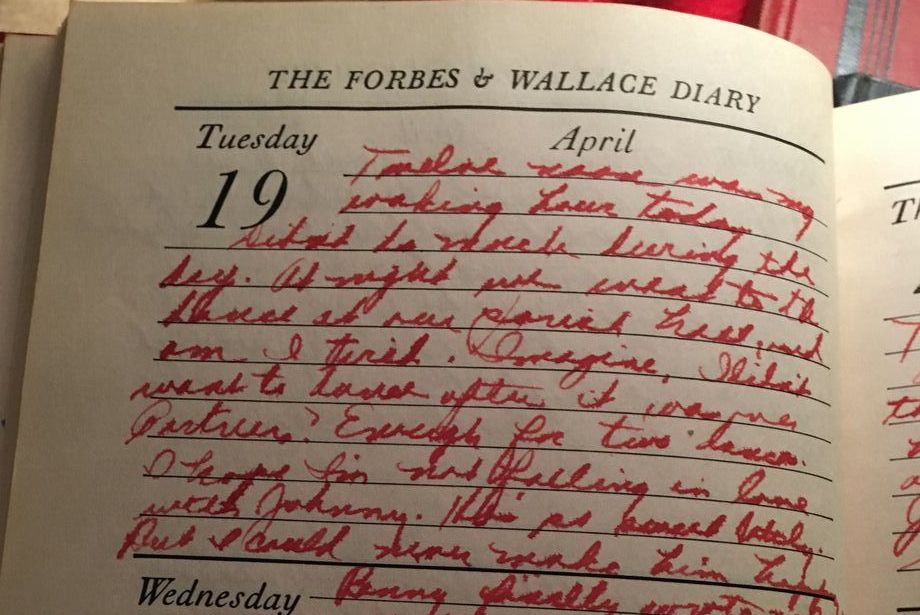 THE FORBES & WALLACE DIARY
Tuesday April
19 Twelve noon was my
waking hour today.
Didn't do much during the
day. At night we went to the
dance at our parish hall, and
am I tired. Imagine, I didn't
want to dance after it was
Partners? Except for two dances.
I hope I'm not falling in love
with Johnny. He's so sweet lately.
But I could never make him
Wednesday Penny finally wrote
Th